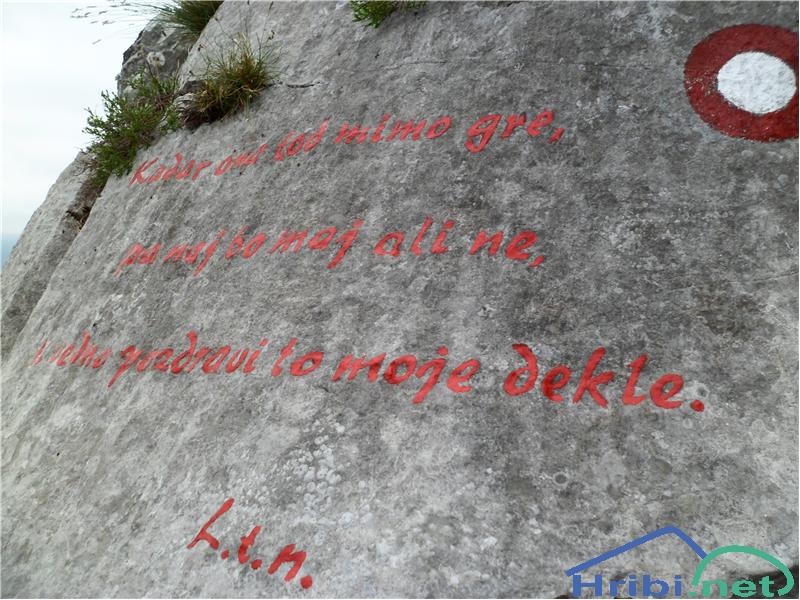 Kadar ona tod mimo gre,
pa naj bo maj ali ne,
pozdravi to moje dekle.
L.t.m.
Hribi.net